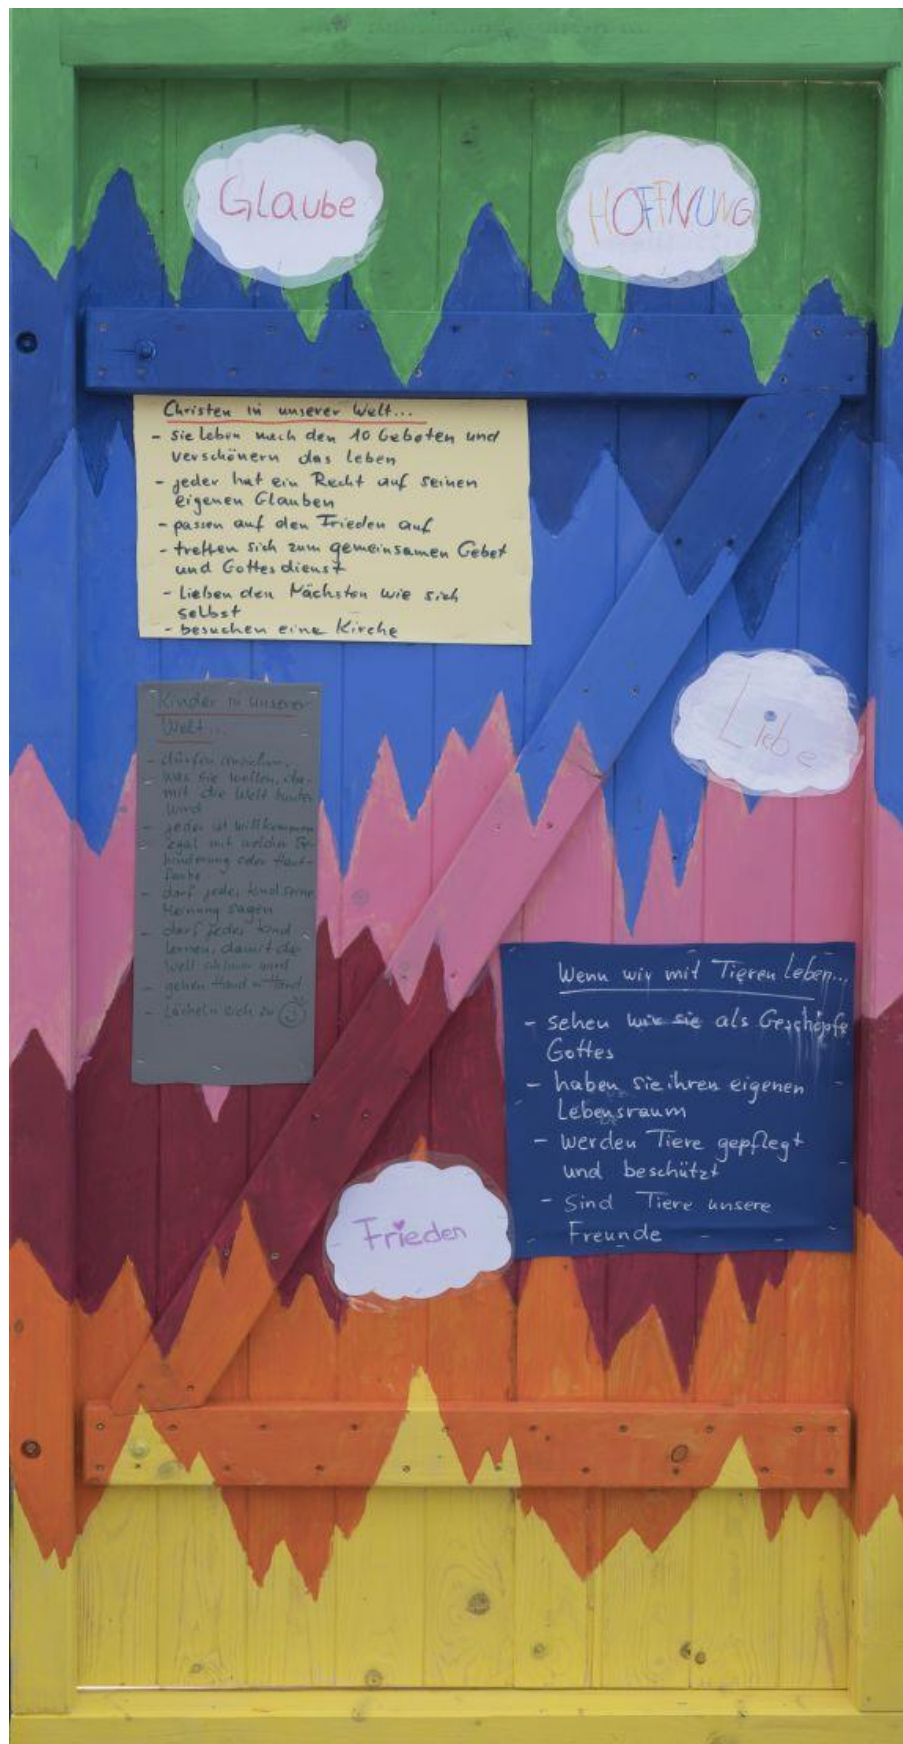 Glaube
HOFFNUNG
Christen in unserer Welt...
- sie leben nach den 10 Geboten und
verschönern das Leben
- jeder hat ein Recht auf seinen
eigenen Glauben
- passen auf den Frieden auf
- treffen sich zum gemeinsamen Gebet
und Gottesdienst
- lieben den Nächsten wie sich
selbst
- besuchen eine Kirche
Liebe
Kinder in unserer
Welt...
- dürfen anziehen,
was sie wollen, da-
mit die Welt bunter
wird
- jeder ist willkommen
egal mit welcher Be-
hinderung oder Haut-
farbe
- darf jedes Kind seine
Meinung sagen
- darf jedes Kind
lernen, damit die
Welt schlauer wird
- gehen Hand in Hand
- lächeln sich zu
Wenn wir mit Tieren leben...
- sehen wir sie als Geschöpfe
Gottes
- haben sie ihren eigenen
Lebensraum
- werden Tiere gepflegt
und beschützt
- Sind Tiere unsere
Freunde
Frieden